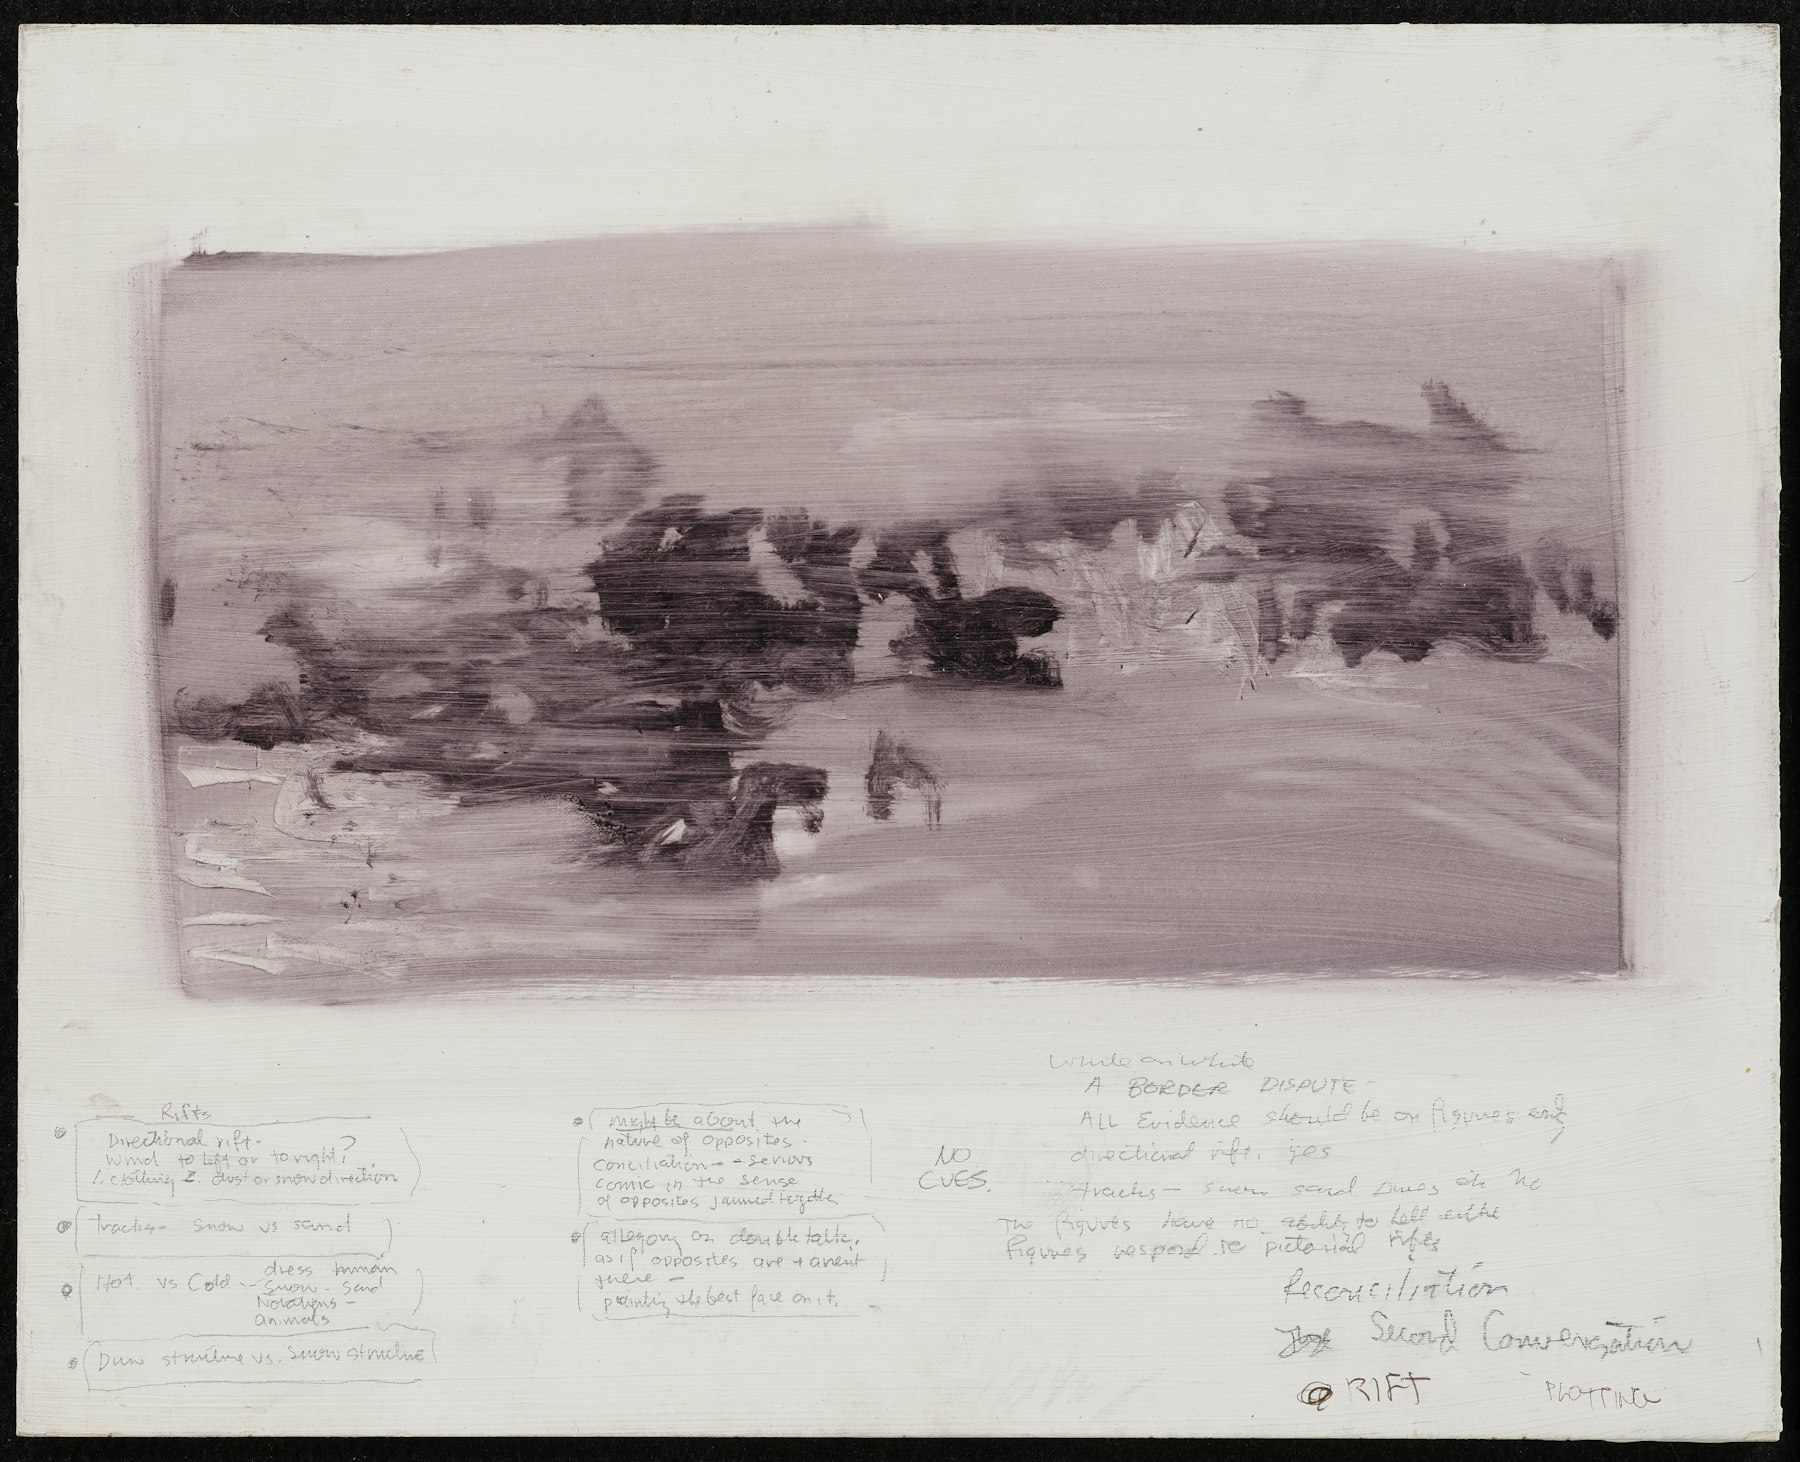 Rifts
Directional rift-
Wind to left or to right?
1. clothing 2. dust or snow direction
tracks - snow vs sand
Hot vs Cold - dress human
snow - sand
Notations -
animals
Dune structure vs. snow structure
might be about the
nature of opposites -
conciliation - - serious
comic in the sense
of opposites jammed together
allegory on double talk,
as if opposites are + aren't
there -
painting the best face on it.
NO
CUES.
white on white
A BORDER DISPUTE -
ALL Evidence should be on figures only
directional rift, yes
tracks - snow sand
The figures have no ability to tell either
figures respond to pictorial rifts
Reconciliation
Second Conversation
a RIFT
PLOTTING